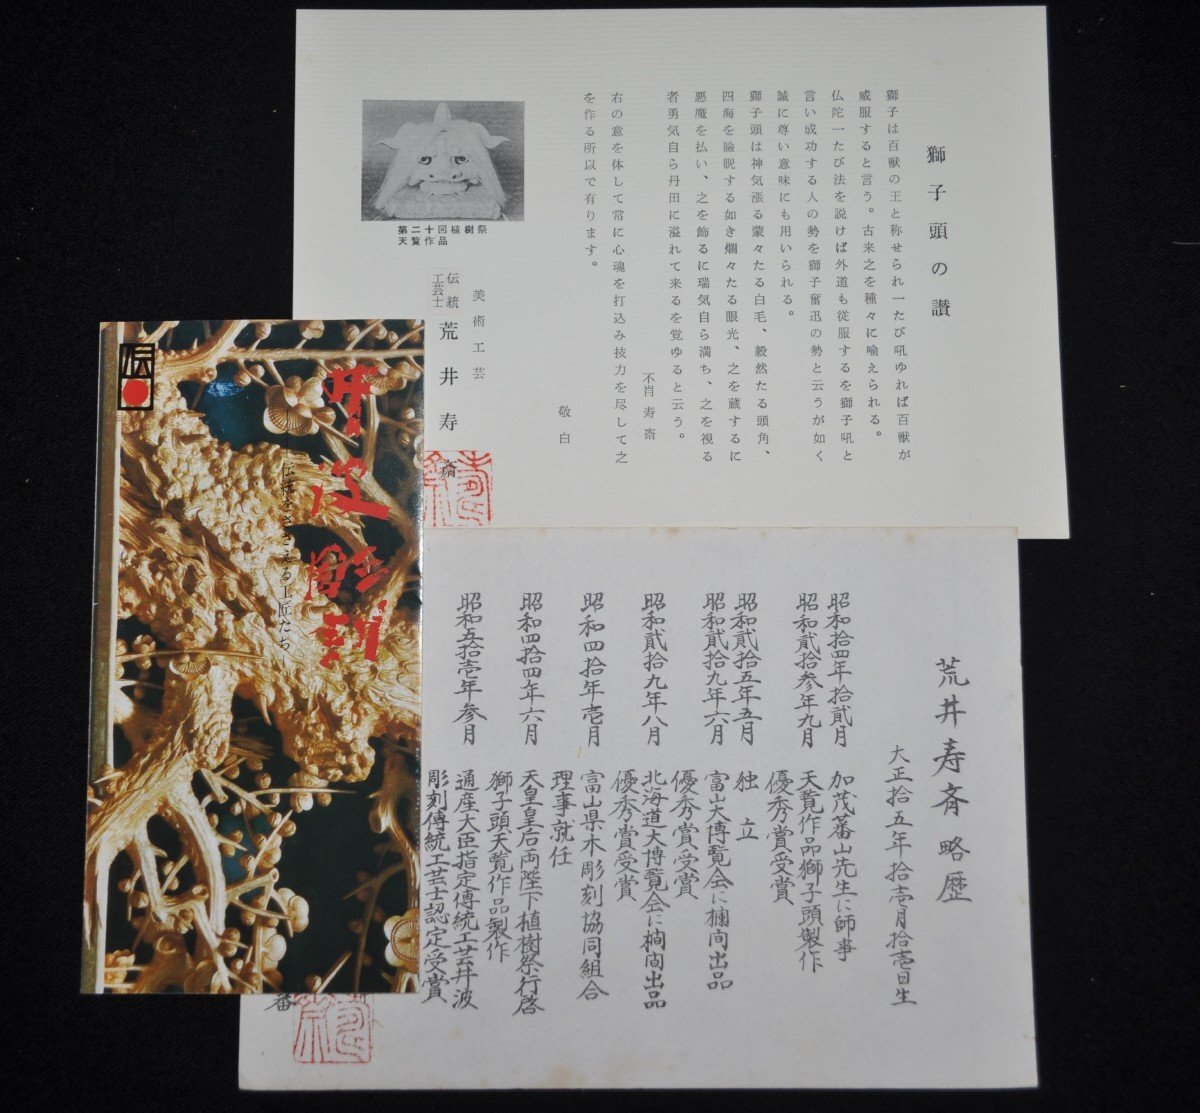 獅子頭の讃
獅子は百獣の王と称せられ一たび吼ゆれば百獣が
威服すると言う。古来之を種々に喩えられる。
仏陀一たび法を説けば外道も従服するを獅子吼と
言い成功する人の勢を獅子奮迅の勢と云うが如く
誠に尊い意味にも用いられる。
獅子頭は神気漲る蒙々たる白毛、毅然たる頭角、
四海を睥睨する如き烱々たる眼光、之を蔵するに
悪魔を払い、之を飾るに瑞気自ら満ち、之を視る
者勇気自ら丹田に溢れて来るを覚ゆると云う。
不肖寿斎
右の意を体して常に心魂を打込み技力を尽して之
を作る所以で有ります。
敬白
第二十回植樹祭
天覧作品
美術工芸
伝統
工芸士
荒井寿斎
伝
井波彫刻
伝統をささえる工匠たち
荒井寿斉略歴
大正拾五年拾壱月拾壱日生
昭和拾四年拾貳月 加茂蕃山先生に師事
昭和貳拾参年九月 天覧作品獅子頭製作
優秀賞受賞
昭和貳拾五年五月 独立
昭和貳拾九年六月 富山大博覧会に欄間出品
優秀賞受賞
昭和貳拾九年八月 北海道大博覧会に欄間出品
優秀賞受賞
昭和四拾年壱月 富山県木彫刻協同組合
理事就任
昭和四拾四年六月 天皇皇后両陛下植樹祭行啓
獅子頭天覧作品製作
昭和五拾壱年参月 通産大臣指定傳統工芸井波
彫刻傳統工芸士認定受賞
番